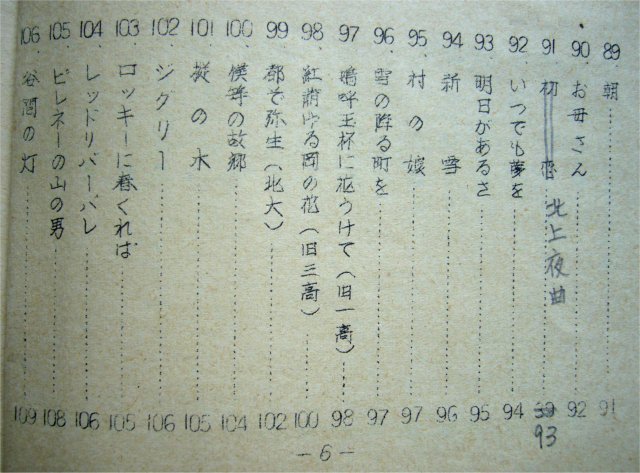 89 朝 91
90 お母さん 92
91 初恋 北上夜曲 59 93
92 いつでも夢を 94
93 明日があるさ 95
94 新雪 96
95 村の娘 97
96 雪の降る町を 97
97 嗚呼玉杯に花うけて(旧一高) 98
98 紅萌ゆる岡の花(旧三高) 100
99 都ぞ弥生(北大) 102
100 僕等の故郷 104
101 樅の木 105
102 ジグリー 106
103 ロッキーに春くれば 105
104 レッドリバーバレ 106
105 ピレネーの山の男 108
106 谷間の灯 109
-6-